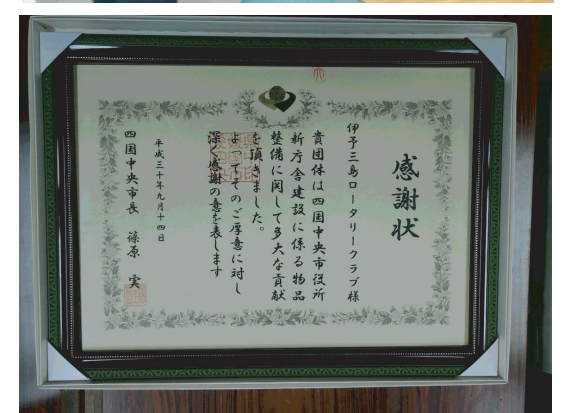 感謝状
伊予三島ロータリークラブ様
貴団体は四国中央市役所
新庁舎建設に係る物品
整備に関して多大な貢献
を頂きました。
よってそのご厚意に対し
深く感謝の意を表します
平成三十年九月十四日
四国中央市長 篠原 実